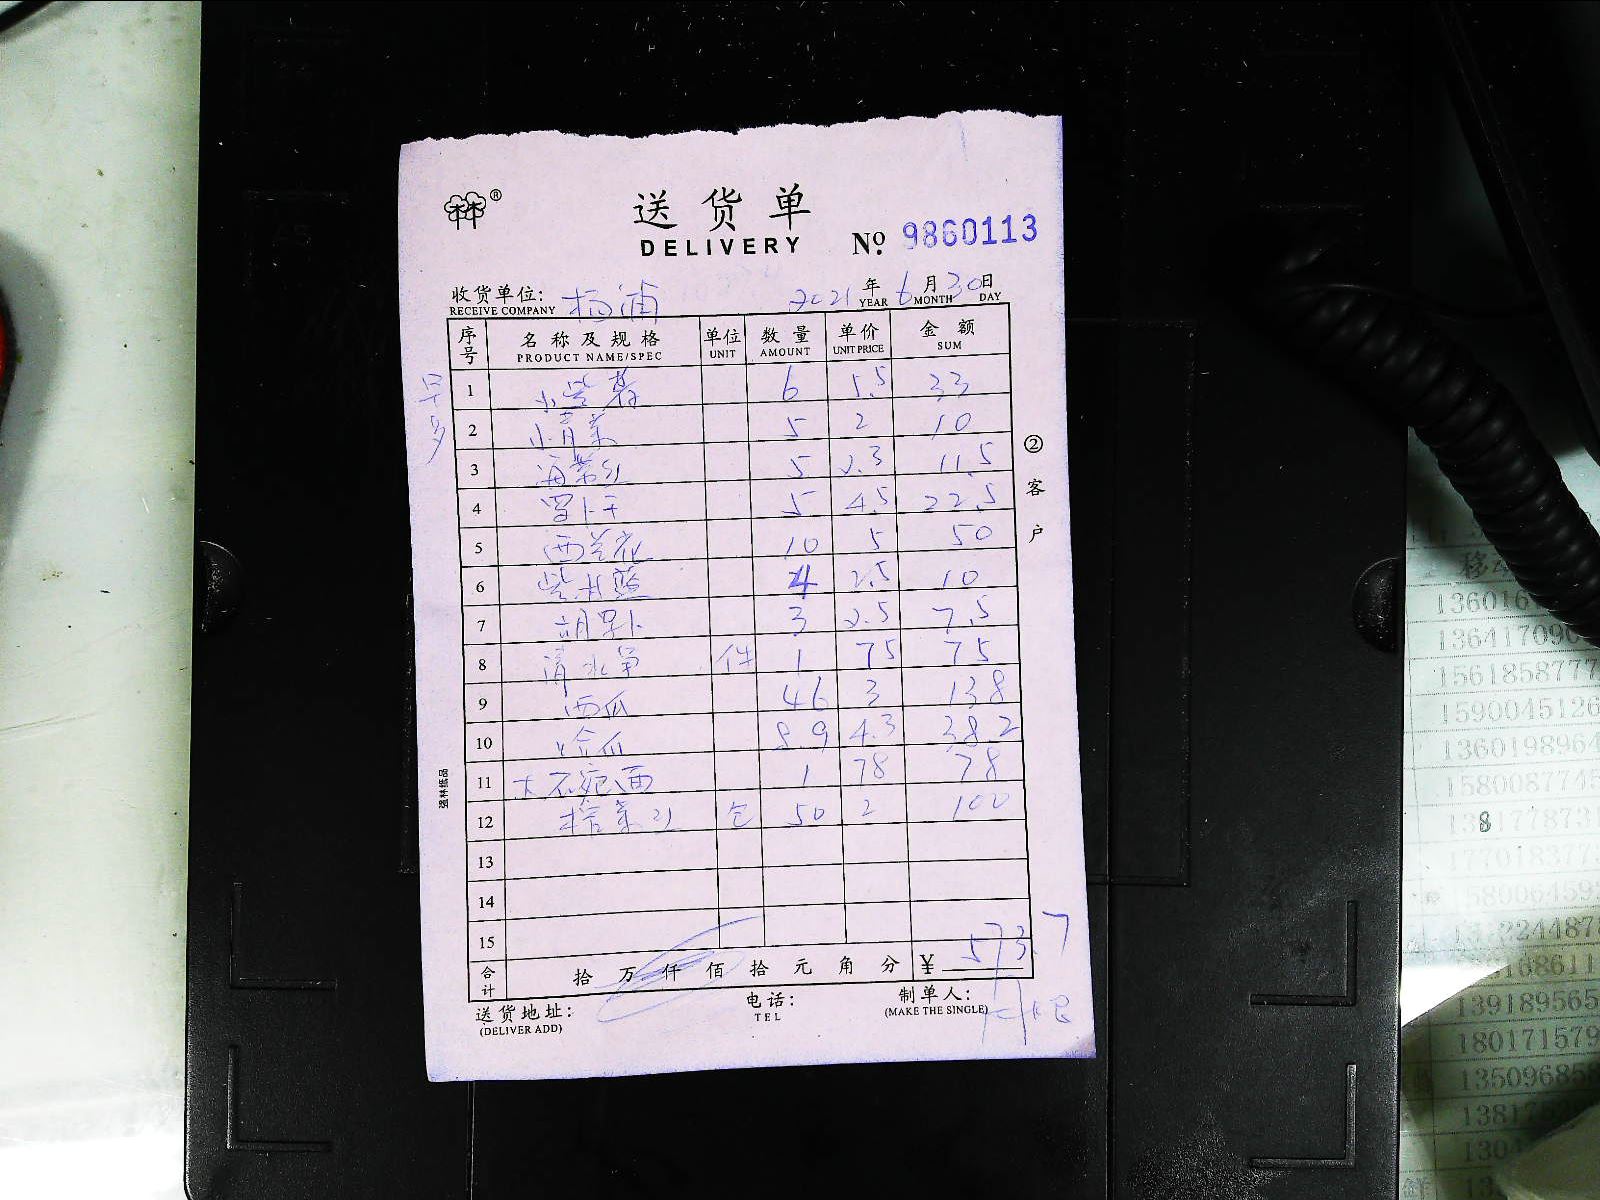 林®
送货单
DELIVERY
No. 9860113
收货单位: 杨浦 2021 年 6 月 30 日
RECEIVE COMPANY YEAR MONTH DAY
序号 名称及规格 单位 数量 单价 金额
PRODUCT NAME/SPEC UNIT AMOUNT UNIT PRICE SUM
1 小紫薯 6 5.5 33
2 小青菜 5 2 10
3 海带丝 5 2.3 11.5
4 萝卜干 5 4.5 22.5
5 西兰花 10 5 50
6 紫甘蓝 4 2.5 10
7 胡萝卜 3 2.5 7.5
8 清水笋 件 1 75 75
9 西瓜 46 3 138
10 哈瓜 8.9 4.3 38.2
11 1 78 78
12 榨菜丝 包 50 2 100
13
14
15
合计 拾 万 仟 佰 拾 元 角 分 ¥ 573.7
送货地址: 电话: 制单人:
(DELIVER ADD) TEL (MAKE THE SINGLE)
②客户
强林纸品